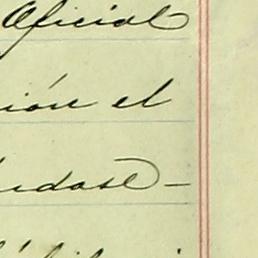 Oficial
ión el
ándose-